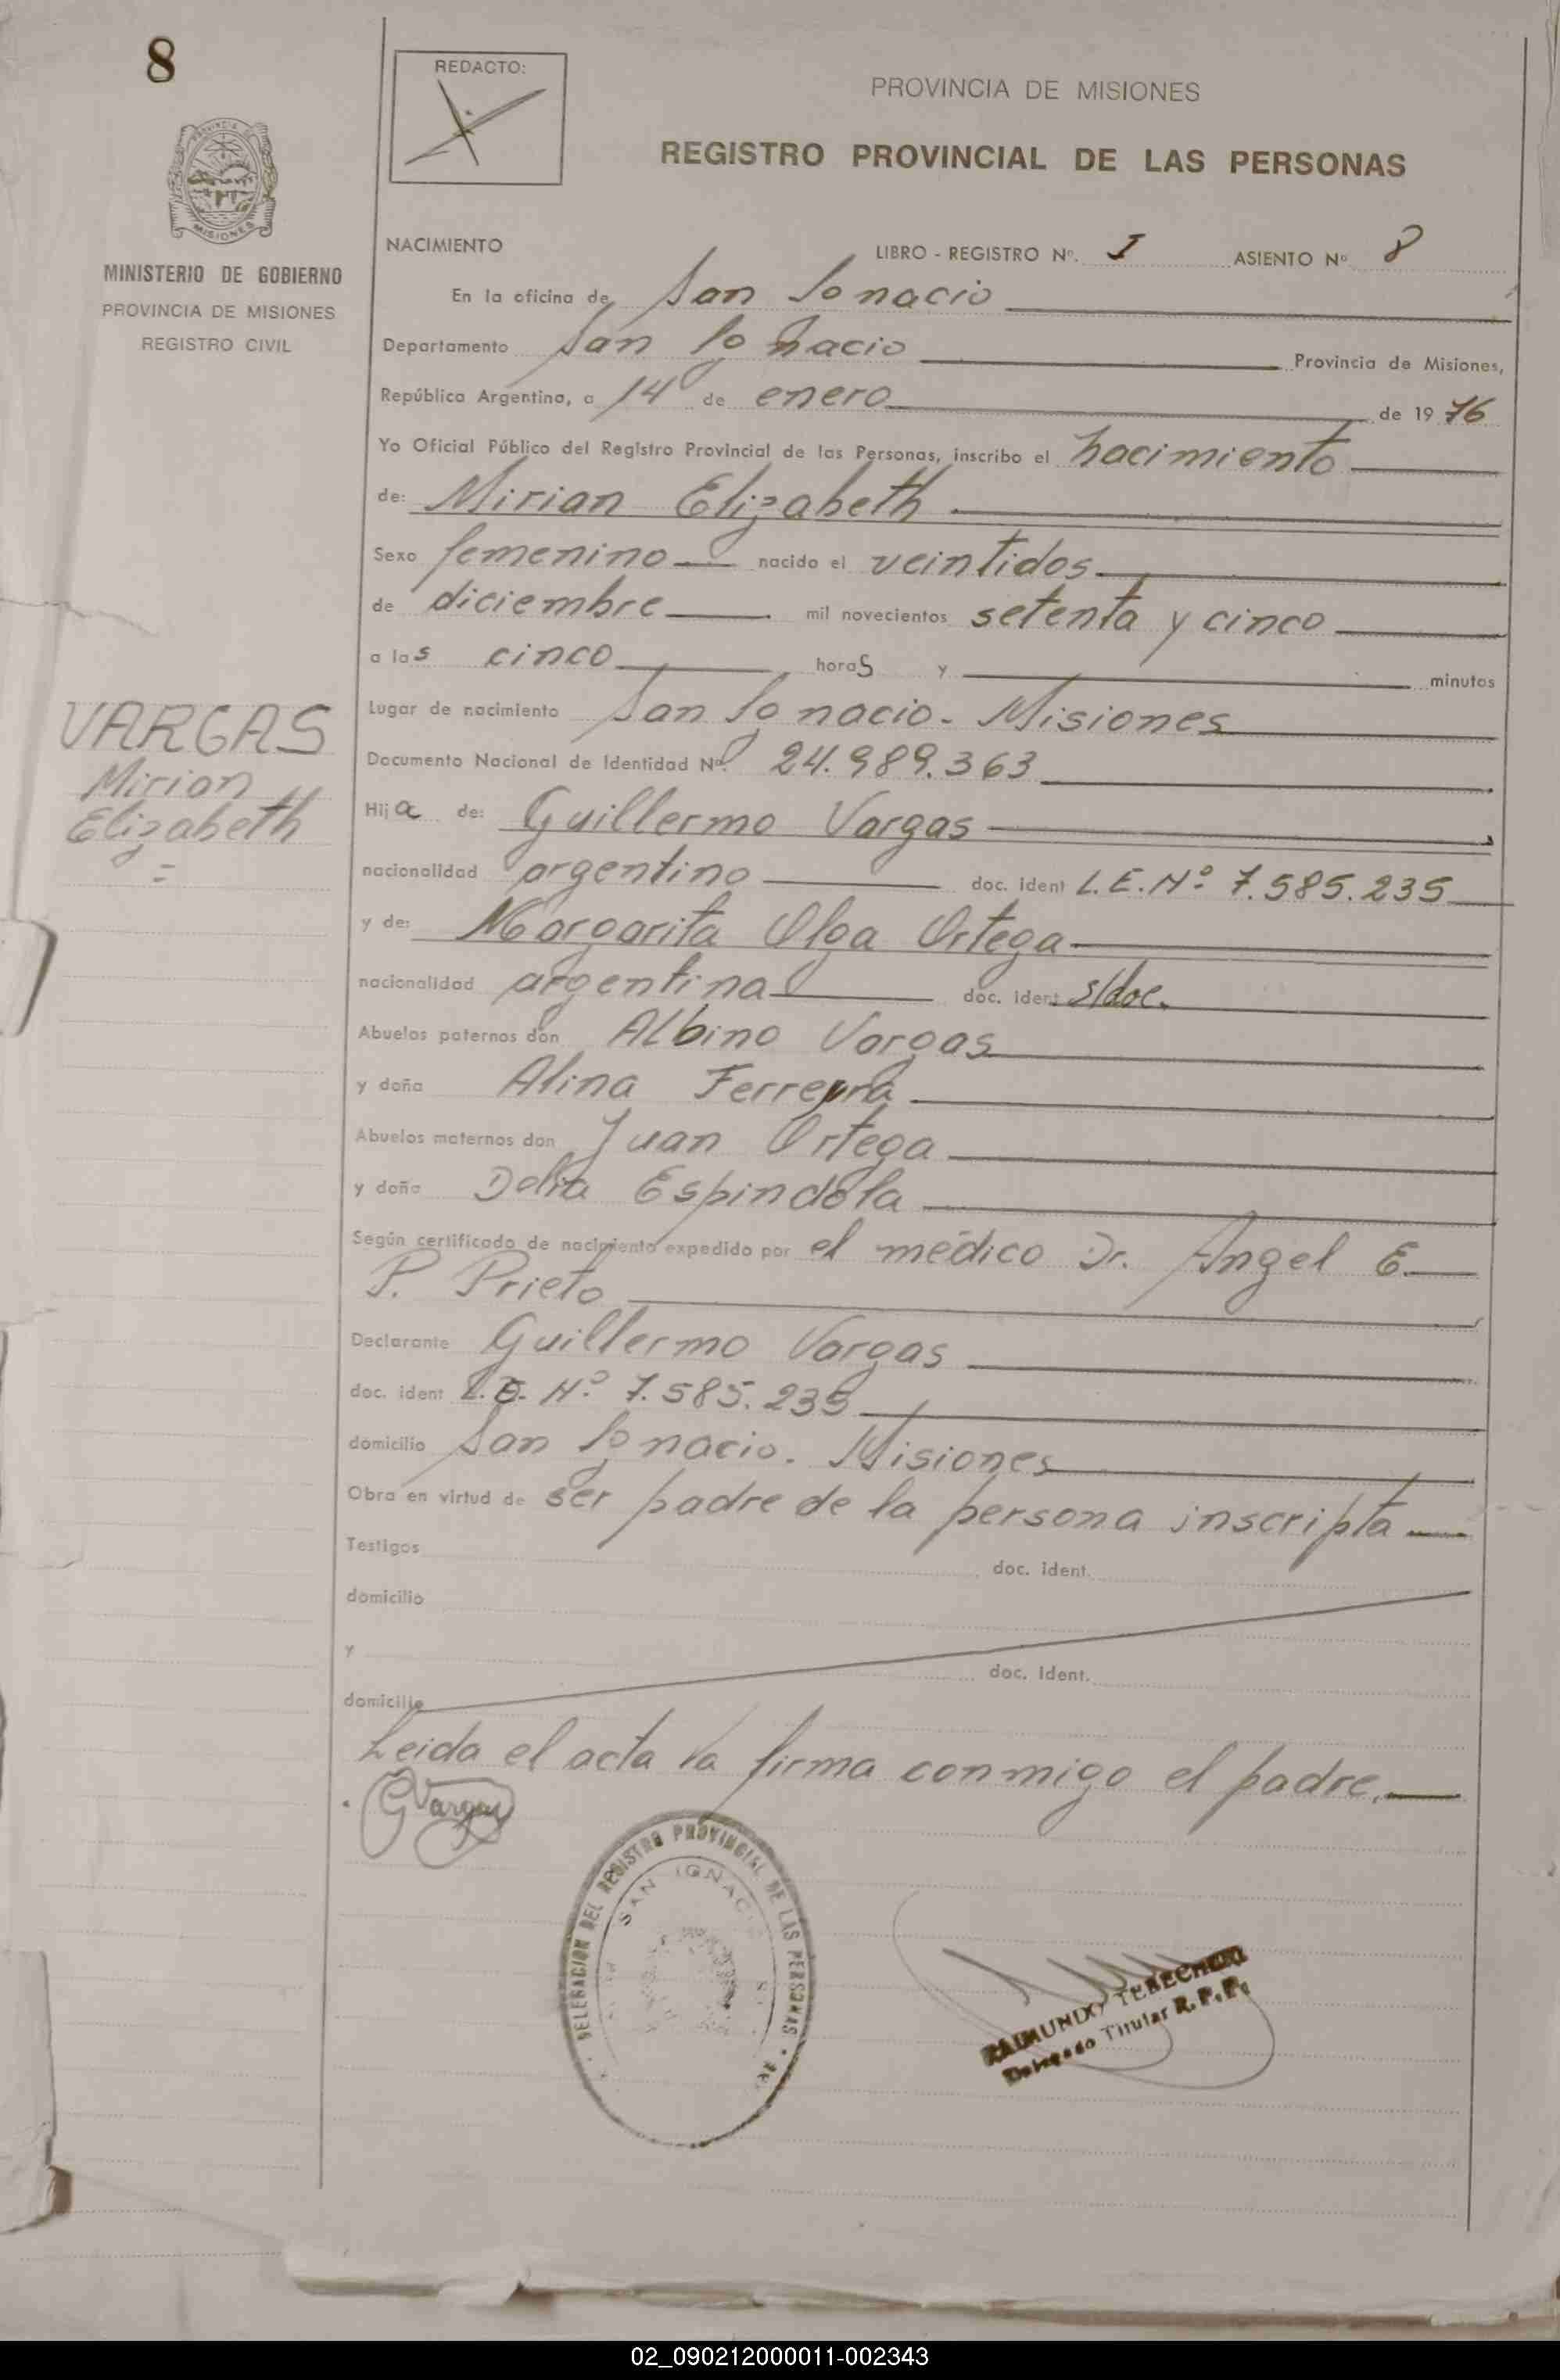 8
REDACTO:
PROVINCIA DE MISIONES
REGISTRO PROVINCIAL DE LAS PERSONAS
PROVINCIA DE
MISIONES
MINISTERIO DE GOBIERNO
PROVINCIA DE MISIONES
REGISTRO CIVIL
NACIMIENTO LIBRO - REGISTRO Nº. I ASIENTO Nº 8
En la oficina de San Ignacio
Departamento San Ignacio Provincia de Misiones,
República Argentina, a 14 de enero de 1976
Yo Oficial Público del Registro Provincial de las Personas, inscribo el nacimiento
de: Mirian Elizabeth
Sexo femenino nacido el veintidos
de diciembre mil novecientos setenta y cinco
a las cinco horas y minutos
Lugar de nacimiento San Ignacio - Misiones
VARGAS
Mirian
Elizabeth
=
Documento Nacional de Identidad Nº 24.989.363
Hija de: Guillermo Vargas
nacionalidad argentino doc. ident L.E. Nº 7.585.235
y de: Margarita Olga Ortega
nacionalidad argentina doc. ident s/doc.
Abuelos paternos don Albino Vargas
y doña Alina Ferreyra
Abuelos maternos don Juan Ortega
y doña Delia Espindola
Según certificado de nacimiento expedido por el médico Dr. Angel E.
P. Prieto
Declarante Guillermo Vargas
doc. ident L.E. Nº 7.585.235
domicilio San Ignacio. Misiones
Obra en virtud de ser padre de la persona inscripta
Testigos doc. ident.
domicilio
y doc. ident.
domicilio
Leida el acta la firma conmigo el padre.
GVargas
DELEGACION DEL REGISTRO PROVINCIAL DE LAS PERSONAS
SAN IGNACIO
RAIMUNDO
Delegado Titular R.P.P.
02_090212000011-002343